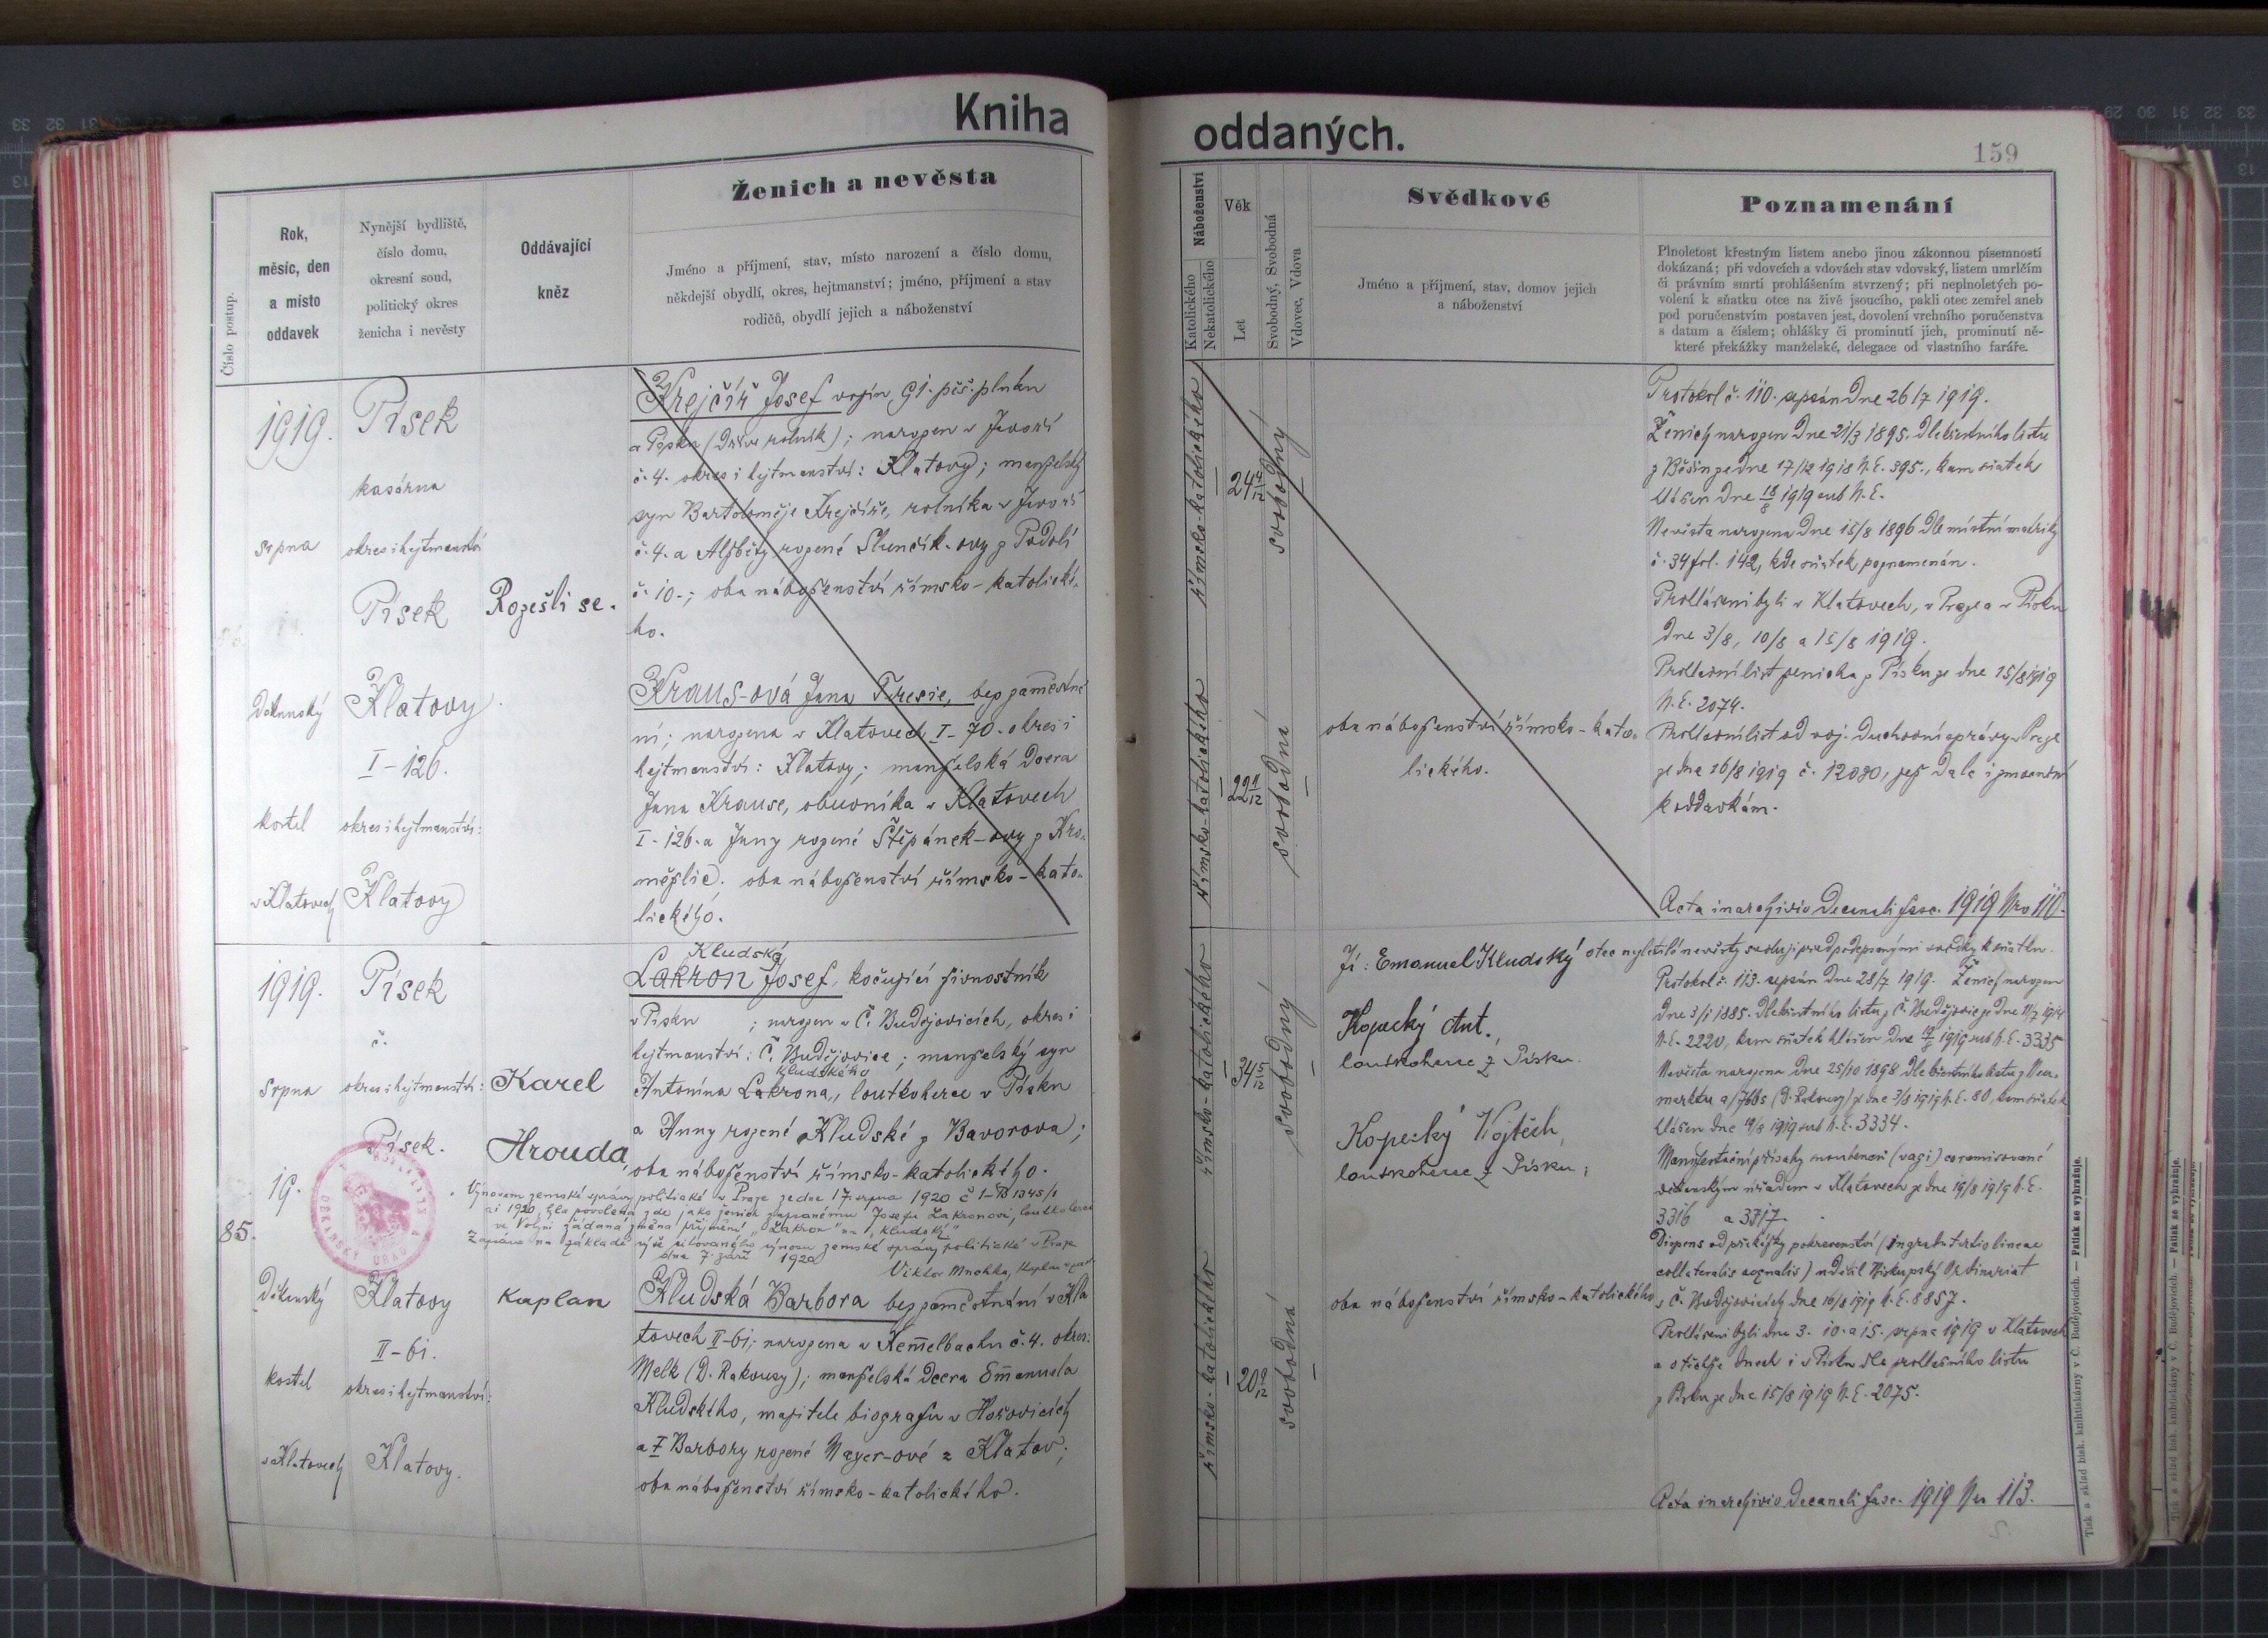 Kniha
oddaných.
159
Číslo postup.
Rok,
měsíc, den
a místo
oddavek
Nynější bydliště,
číslo domu,
okresní soud,
politický okres
ženicha i nevěsty
Oddávající
kněz
Ženich a nevěsta
Jméno a příjmení, stav, místo narození a číslo domu,
někdejší obydlí, okres, hejtmanství; jméno, příjmení a stav
rodičů, obydlí jejich a náboženství
Náboženství
Katolického
Nekatolického
Věk
Let
Svobodný, Svobodná
Vdovec, Vdova
Svědkové
Jméno a příjmení, stav, domov jejich
a náboženství
Poznamenání
Plnoletost křestným listem anebo jinou zákonnou písemností
dokázaná; při vdovcích a vdovách stav vdovský, listem umrlčím
či právním smrti prohlášením stvrzený; při neplnoletých po-
volení k sňatku otce na živě jsoucího, pakli otec zemřel aneb
pod poručenstvím postaven jest, dovolení vrchního poručenstva
s datum a číslem; ohlášky či prominutí jich, prominutí ně-
které překážky manželské, delegace od vlastního faráře.
1919.
srpna
Děkanský
kostel
v Klatovech
Písek
kasárna
okres i hejtmanství
Písek
Klatovy
I-126.
okres i hejtmanství:
Klatovy
Rozešli se.
Krejčíř Josef vojín, 91. pěš. pluku
v Písku (Dříve rolník); narozen v Javoří
č. 4. okres i hejtmanství: Klatovy; manželský
syn Bartoloměje Krejčíře, rolníka v Javoří
č. 4. a Alžběty rozené Slunčík-ovy z Podolí
č. 10.; oba náboženství římsko-katolické-
ho.
Kraus-ová Jana Teresie, bez zaměstná
ní; narozena v Klatovech I-70. okres i
hejtmanství: Klatovy; manželská Dcera
Jana Krause, obuvníka v Klatovech
I-126. a Jany rozené Štěpánek-ovy z Kro-
měžlic. oba náboženství římsko-kato-
lického.
římsko-katolického
24
svobodný
římsko-katolického
22
svobodná
oba náboženství římsko-kato-
lického.
Protokol č. 110. sepsán Dne 26/7 1919.
Ženich narozen Dne 21/3 1895. Dle křestního listu
z Běšin ze dne 17/12 1918 N.E. 395., kam sňatek
hlášen Dne 18/8 1919 sub N.E.
Nevěsta narozena Dne 15/8 1896 Dle místní matriky
č. 34 fol. 142, kde sňatek poznamenán.
Prohlášeni byli v Klatovech, v Praze a v Písku
Dne 3/8, 10/8 a 15/8 1919.
Prohlašní list ženicha z Písku ze dne 15/8 1919
N.E. 2074.
Prohlašní list od voj. Duchovní správy v Praze
ze dne 16/8 1919 č. 12030, jež Dala i zmocnění
k oddavkám.
Acta in archivio Decanali fasc. 1919 Nro 110.
85.
1919.
srpna
19.
Děkanský
kostel
v Klatovech
Písek
č.
okres i hejtmanství:
Písek.
Klatovy
II-61.
okres i hejtmanství:
Klatovy.
Karel
Hrouda,
kaplan
Kludský
Lakron Josef, kočující živnostník
v Písku ; narozen v Č. Budějovicích, okres i
hejtmanství: Č. Budějovice; manželský syn
Kludského
Antonína Lakrona, loutkoherce v Písku
a Anny rozené Kludské z Bavorova;
oba náboženství římsko-katolického.
Výnosem zemské správy politické v Praze ze dne 17. srpna 1920 č 1-
ai 1920, byla povolena zde jako ženich zapsanému Josefu Lakronovi, loutkoherci
ve Volyni žádaná změna příjmení "Lakron" na "Kludský"
Zapsáno na základě výše citovaného výnosu zemské správy politické v Praze
dne 7. září 1920
Viktor Muchka, kaplan
Kludská Barbora bez zaměstnání v Kla
tovech II-61; narozena v Kemelbachu č. 4. okres:
Melk (D. Rakousy); manželská Dcera Emanuela
Kludského, majitele biografu v Hořovicích
a Barbory rozené Mayer-ové z Klatov;
oba náboženství římsko-katolického.
římsko-katolického
34
svobodný
římsko-katolického
20
svobodná
Já: Emanuel Kludský otec nezletilé nevěsty svoluji před podepsanými svědky k sňatku.
Kopecký Ant.,
loutkoherec z Písku.
Kopecký Vojtěch,
loutkoherec z Písku;
oba náboženství římsko-katolického
Protokol č. 113. sepsán Dne 28/7 1919. Ženich narozen
Dne 3/1 1885. Dle křestního listu z Č. Budějovic ze Dne 11/7 1914
N.E. 2220, kam sňatek hlášen Dne 19/8 1919 sub N.E. 3335
Nevěsta narozena Dne 25/10 1898 Dle křestního listu z Neu-
marktu a/Ybbs (D. Rakousy) ze dne 3/8 1919 N.E. 80, kam sňatek
hlášen dne 19/8 1919 sub N.E. 3334.
Manifestační přísahy snoubenců (vagi)
děkanským úřadem v Klatovech ze dne 19/8 1919 N.E.
3316 a 3317.
Dispens od překážky pokrevenství (in gradu tertio lineae
collateralis aequalis) udělil Biskupský Ordinariat
v Č. Budějovicích Dne 16/8 1919 N.E. 8857.
Prohlášeni byli dne 3. 10. a 15. srpna 1919 v Klatovech
a v těchže dnech i v Písku dle prohlašního listu
z Písku ze dne 15/8 1919 N.E. 2075.
Acta in archivio Decanali fasc. 1919 Nro 113.
Tisk a sklad bisk. knihtiskárny v Č. Budějovicích. — Patisk se vyhražuje.